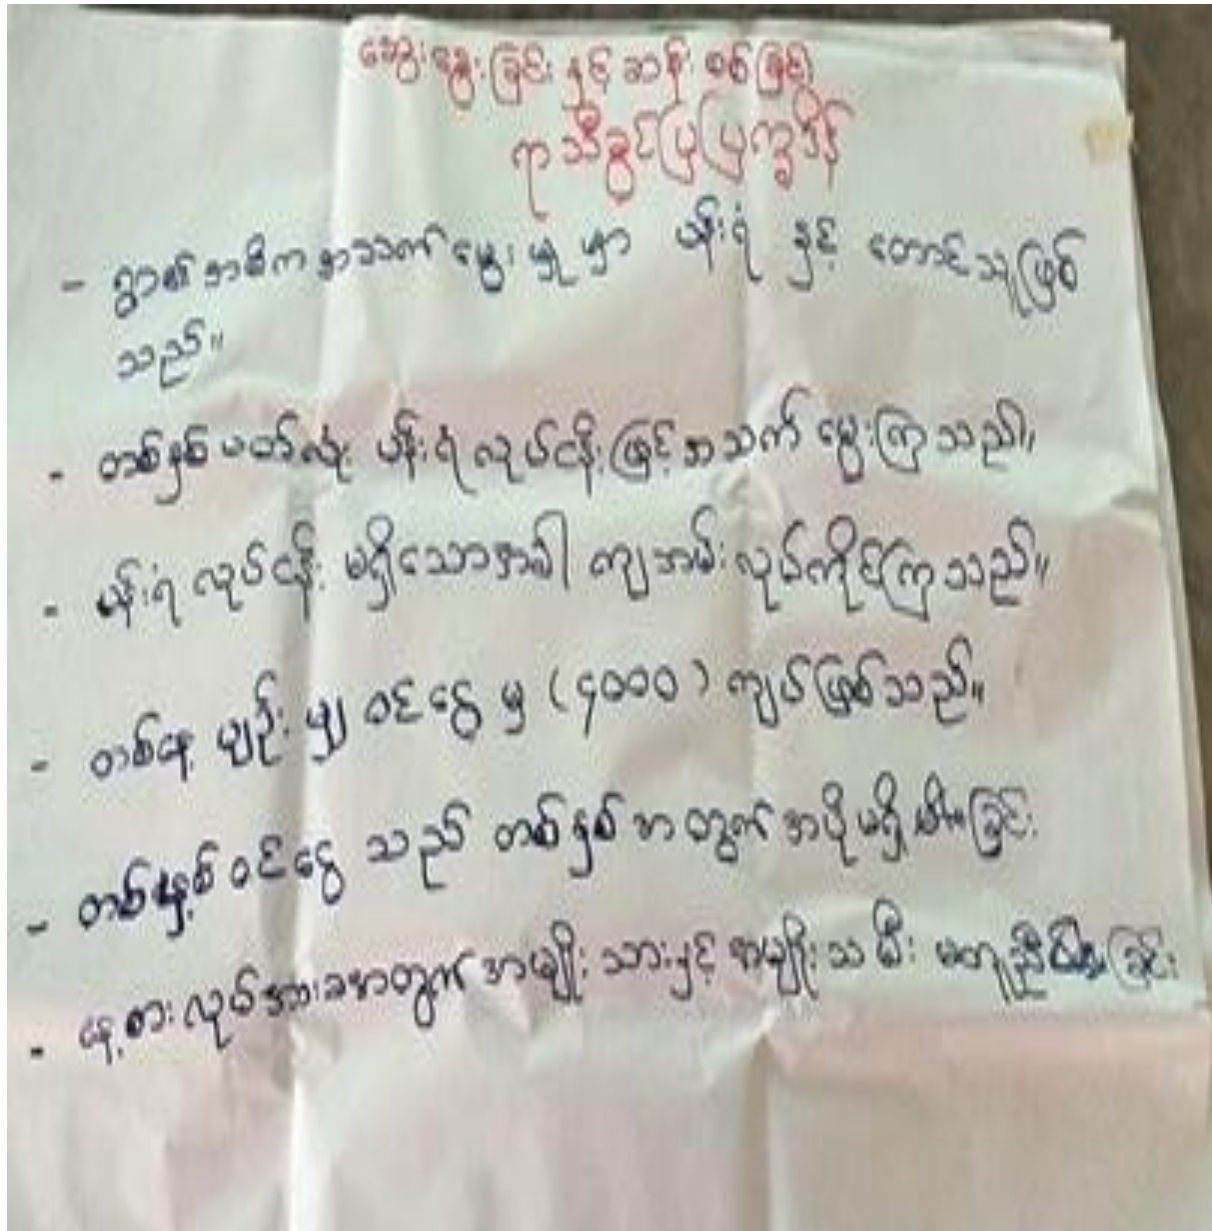 ဆွေးနွေးခြင်း နှင့် ဆန်းစစ်ခြင်း
ရာသီခွင်ပြပြက္ခဒိန်
- ရွာ၏ အဓိက အသက်မွေးမှု မှာ ပန်းရံ နှင့် တောင်သူဖြစ်
သည်။
- တစ်နှစ်ပတ်လုံး ပန်းရံ လုပ်ငန်းဖြင့် အသက်မွေးကြသည်။
- ပန်းရံ လုပ်ငန်း မရှိသောအခါ ကျဘမ်းလုပ်ကိုင်ကြသည်။
- တစ်နေ့ ပျဉ်းမျှ ဝင်ငွေမှ (၄၀၀၀) ကျပ်ဖြစ်သည်။
- တစ်နှစ်ဝင်ငွေ သည် တစ်နှစ်အတွက် အပိုမရှိ ခြင်း
- နေ့စားလုပ်အားခအတွက် အမျိုးသားနှင့် အမျိုးသမီး မတူညီ ခြင်း